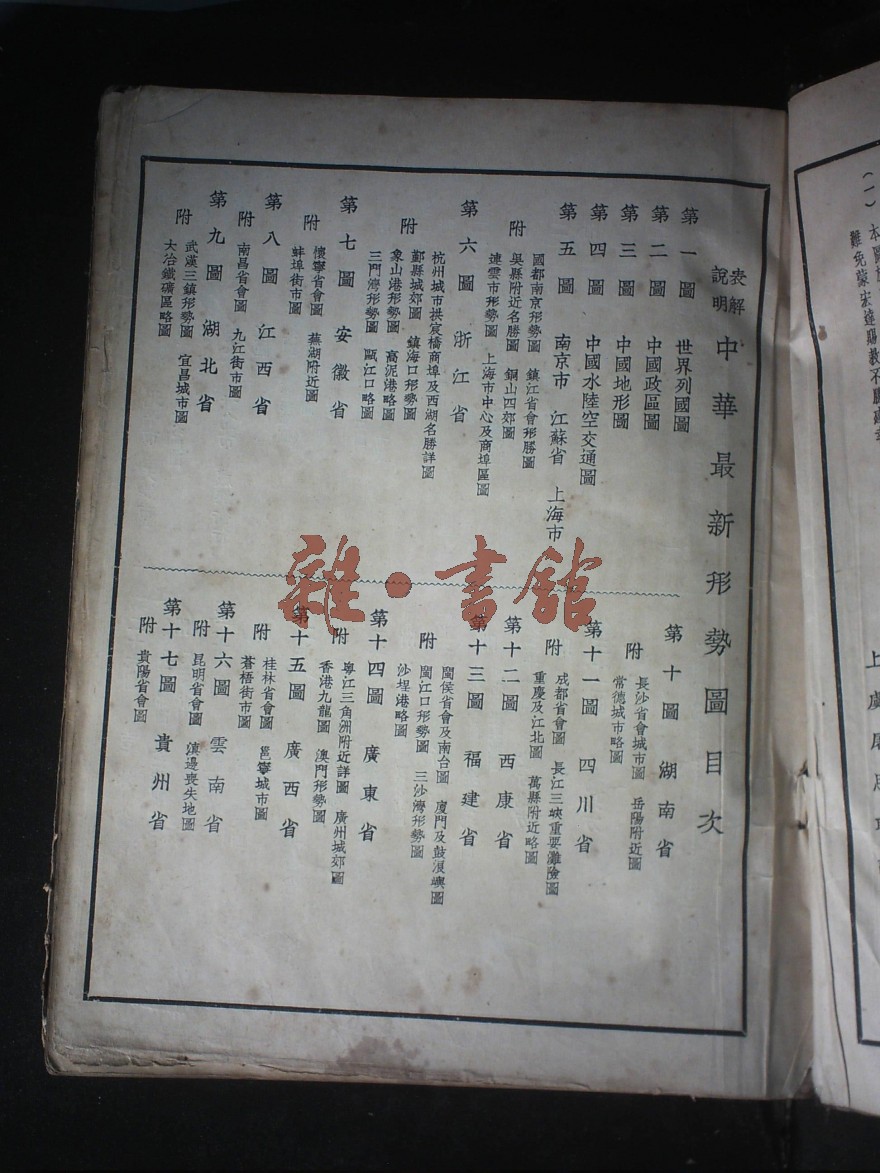 表解說明中華最新形勢圖目次
第一圖 世界列國圖
第二圖 中國政區圖
第三圖 中國地形圖
第四圖 中國水陸空交通圖
第五圖 南京市 江蘇省 上海市
附 國都南京形勢圖 鎮江省會形勝圖
吳縣附近名勝圖 銅山四郊圖
連雲市形勢圖 上海市中心及商埠區圖
第六圖 浙江省
附 杭州城市拱宸橋商埠及西湖名勝詳圖
鄞縣城郊圖 鎮海口形勢圖
象山港形勢圖 高泥港略圖
三門灣形勢圖 甌江口略圖
第七圖 安徽省
附 懷寧省會圖 蕪湖附近圖
蚌埠街市圖
第八圖 江西省
附 南昌省會圖 九江街市圖
第九圖 湖北省
附 武漢三鎮形勢圖 宜昌城市圖
大冶鐵礦區略圖
第十圖 湖南省
附 長沙省會城市圖 岳陽附近圖
常德城市略圖
第十一圖 四川省
附 成都省會圖 長江三峽重要灘險圖
重慶及江北圖 萬縣附近略圖
第十二圖 西康省
第十三圖 福建省
附 閩侯省會及南台圖 廈門及鼓浪嶼圖
閩江口形勢圖 三沙灣形勢圖
沙埕港略圖
第十四圖 廣東省
附 粵江三角洲附近詳圖 廣州城郊圖
香港九龍圖 澳門形勢圖
第十五圖 廣西省
附 桂林省會圖 邕寧城市圖
蒼梧街市圖
第十六圖 雲南省
附 昆明省會圖 滇邊喪失地圖
第十七圖 貴州省
附 貴陽省會圖
雜·書館
(一)
難免蒙宏達賜教不勝